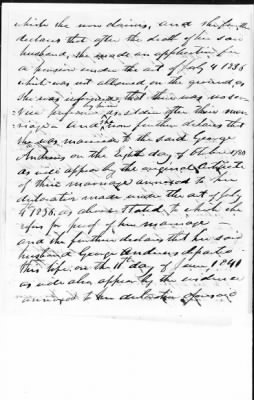 which she now claims, and she further
declares that after the death of her said
husband, she made an application for
a pension under the act of July 4 1836
which was not allowed on the ground, as
she was informed, that there was no ser
vice performed by him after their mar
riage and she now further declares that
she was married to the said George
Andrews on the eighth day of October 1780
as will appear by the original certificate
of their marriage annexed to her
declaration made under the act of July
4 1836. as above stated to which she
refers for proof of her marriage
and she further declares that her said
husband George Andrews departed
this life, on the 11th day of June 1841
as will also appear by the evidence
annexed to her declaration aforesaid